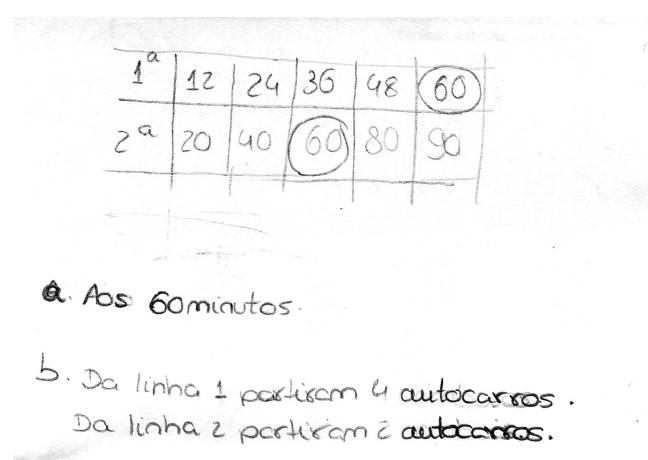 1ª 12 24 36 48 60
2ª 20 40 60 80 90
a. Aos 60 minutos.
b. Da linha 1 partiram 4 autocarros.
Da linha 2 partiram 2 autocarros.